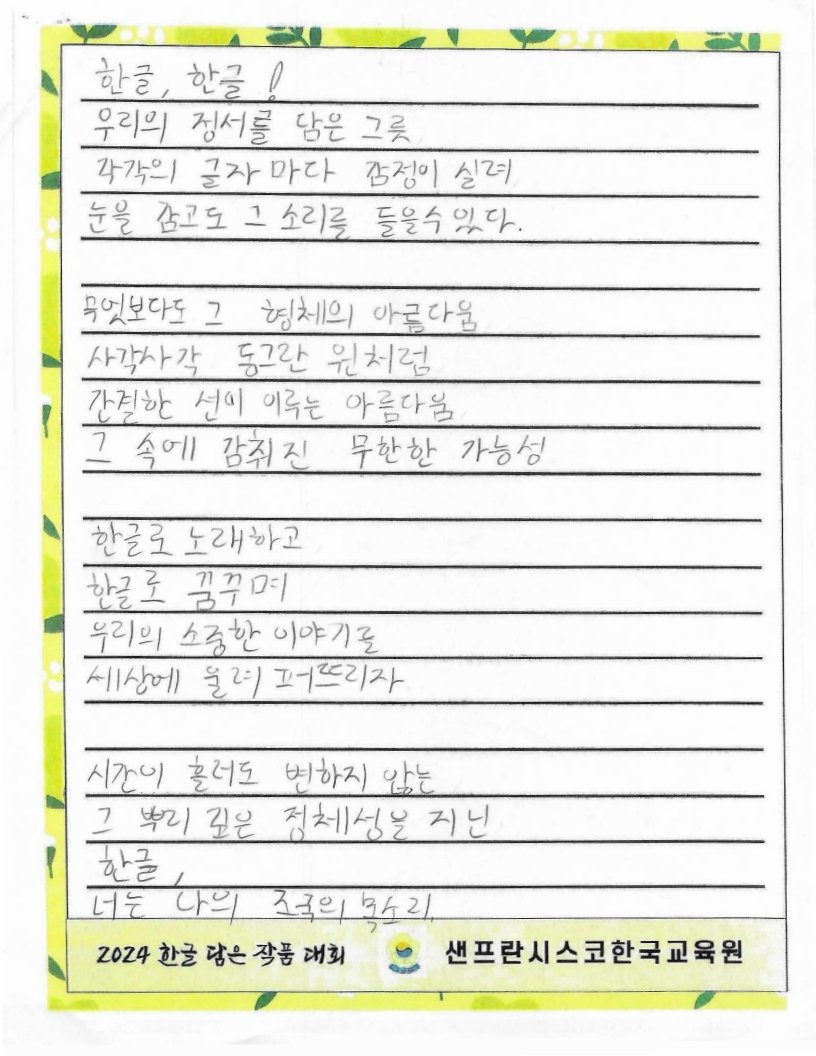 한글, 한글!
우리의 정서를 담은 그릇
각각의 글자마다 감정이 실려
눈을 감고도 그 소리를 들을수 있다.
무엇보다도 그 형체의 아름다움
사각사각 동그란 원처럼
간결한 선이 이루는 아름다움
그 속에 감춰진 무한한 가능성
한글로 노래하고
한글로 꿈꾸며
우리의 소중한 이야기를
세상에 울려 퍼뜨리자
시간이 흘러도 변하지 않는
그 뿌리 깊은 정체성을 지닌
한글,
너는 나의 조국의 목소리
2024 한글 담은 작품 대회
샌프란시스코한국교육원